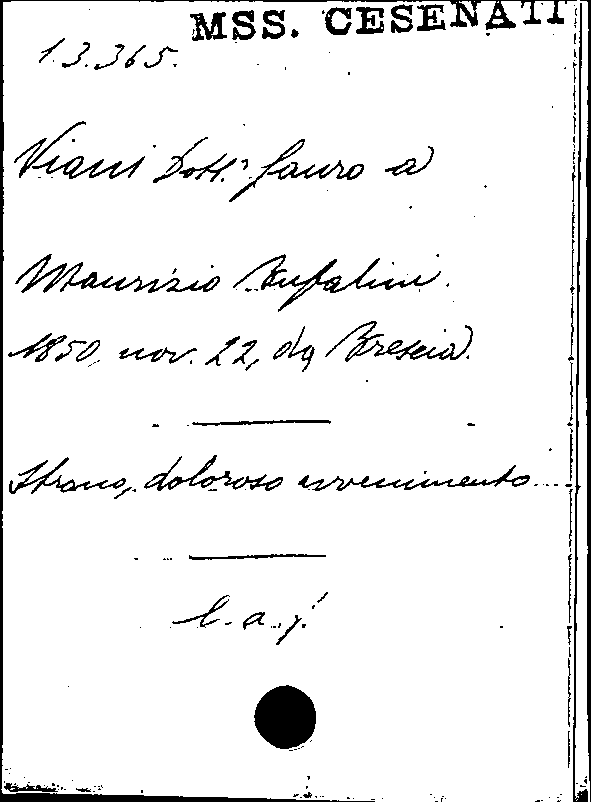 MSS. CESENATI
13.365.
Viani Dott.r Lauro a
Maurizio Bufalini.
1850, nov. 22, da Brescia.
Strano, doloroso avvenimento....
l. a.